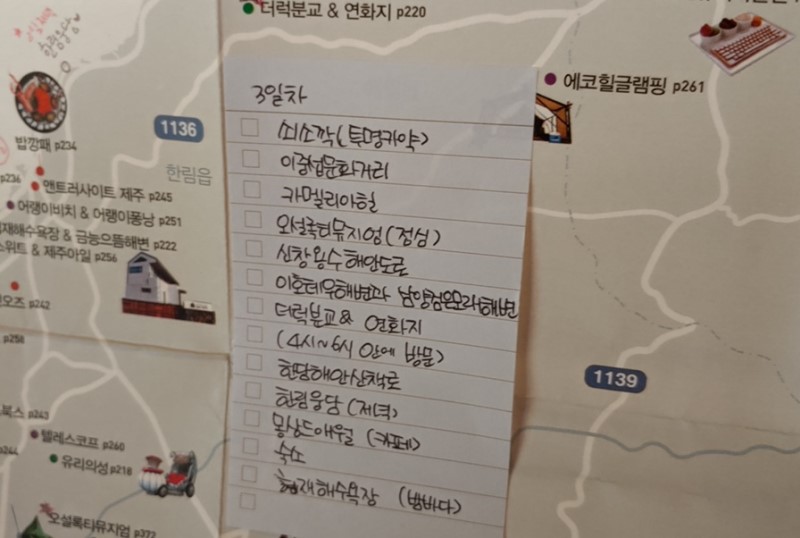 더럭분교 & 연화지 p220
한림웅담
밥깡패 p234
1136
한림읍
에코힐글램핑 p261
p236
앤트러사이트 제주 p245
어랭이비치 & 어랭이퐁낭 p251
재해수욕장 & 금능으뜸해변 p222
스위트 & 제주아일 p256
오즈 p242
p258
북스 p263
텔레스코프 p260
p244
유리의성 p218
오설록티뮤지엄 p372
1139
3일차
쇠소깍(투명카약)
이중섭문화거리
카멜리아힐
오설록티뮤지엄(점심)
신창용수해안도로
이호테우해변과
더럭분교 & 연화지
(4시~6시 안에 방문)
한담해안산책로
한림웅담 (저녁)
몽상드애월 (카페)
숙소
협재해수욕장 (밤바다)